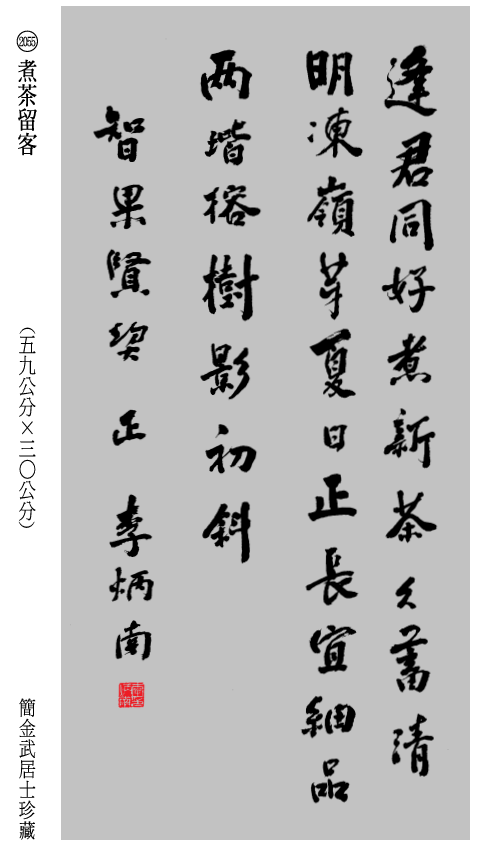 逢君同好煮新茶久蓄清
明凍嶺芽夏日正長宜細品
两堦榕樹影初斜
智果賢契 正 李炳南
2055 煮茶留客 (五九公分×三〇公分) 簡金武居士珍藏